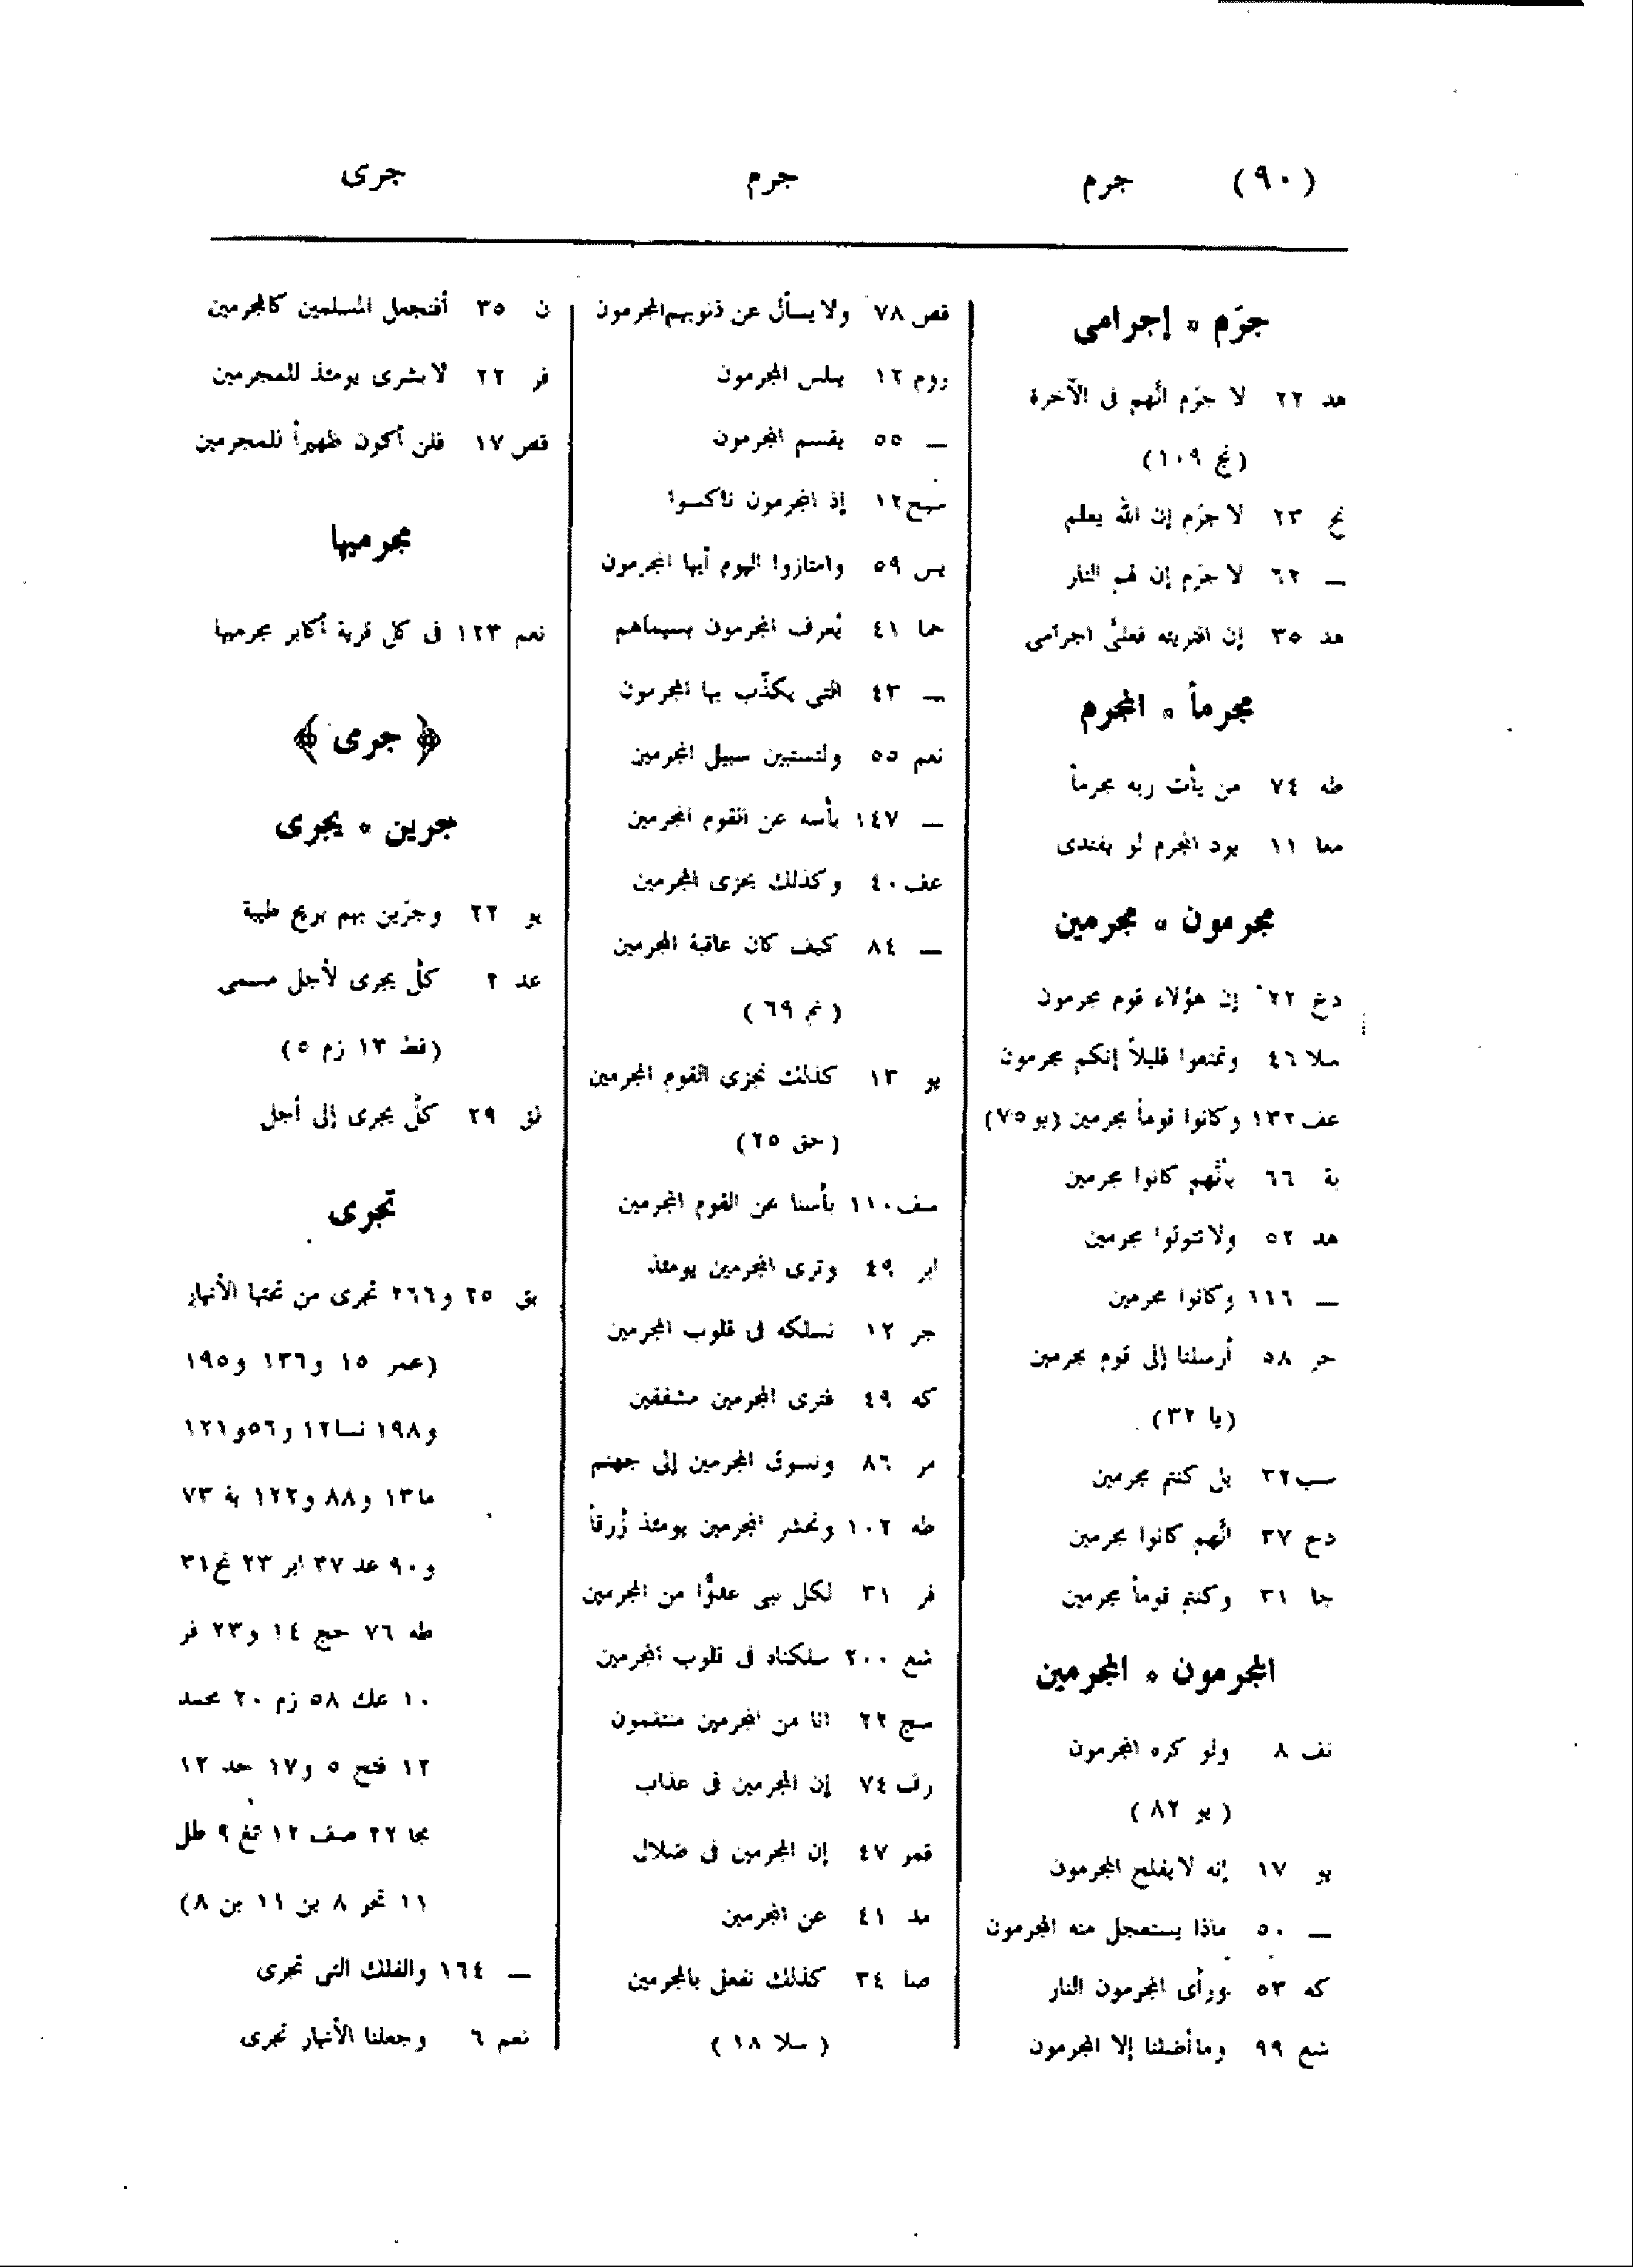 (٩٠) جرم جرم جرى
جرَم * إجرامى
هد ٢٢ لا جرَم انَّهم فى الآخرة
(نح ١٠٩)
نح ٢٣ لا جرَم إن الله يعلم
— ٦٢ لا جرَم إن لهم النار
هد ٣٥ إن افتريته فعلىَّ اجرامى
مجرماً * المجرم
طه ٧٤ من يأت ربه مجرماً
معا ١١ يود المجرم لو يفتدى
مجرمون * مجرمين
دخ ٢٢ إن هؤلاء قوم مجرمون
سلا ٤٦ وتمتعوا قليلاً إنكم مجرمون
عف ١٣٢ وكانوا قوماً مجرمين (يو ٧٥)
بة ٦٦ بأنَّهم كانوا مجرمين
هد ٥٢ ولا تتولوا مجرمين
— ١١٦ وكانوا مجرمين
حر ٥٨ أرسلنا إلى قوم مجرمين
(يا ٣٢)
سب ٣٢ بل كنتم مجرمين
دخ ٣٧ انَّهم كانوا مجرمين
جا ٣١ وكنتم قوماً مجرمين
المجرمون * المجرمين
نف ٨ ولو كره المجرمون
(يو ٨٢)
يو ١٧ إنه لا يفلح المجرمون
— ٥٠ ماذا يستعجل منه المجرمون
كه ٥٣ ورأى المجرمون النار
شع ٩٩ وما أضلنا إلا المجرمون
قص ٧٨ ولا يسأل عن ذنوبهم المجرمون
روم ١٢ يبلس المجرمون
— ٥٥ يقسم المجرمون
سج ١٢ إذ المجرمون ناكسوا
يس ٥٩ وامتازوا اليوم أيها المجرمون
حما ٤١ يُعرف المجرمون بسيماهم
— ٤٣ التى يكذّب بها المجرمون
نعم ٥٥ ولتستبين سبيل المجرمين
— ١٤٧ بأسه عن القوم المجرمين
عف ٤٠ وكذلك نجزى المجرمين
— ٨٤ كيف كان عاقبة المجرمين
(نم ٦٩)
يو ١٣ كذلك نجزى القوم المجرمين
(حق ٢٥)
سف ١١٠ بأسنا عن القوم المجرمين
ابر ٤٩ وترى المجرمين يومئذ
جر ١٢ نسلكه فى قلوب المجرمين
كه ٤٩ فترى المجرمين مشفقين
مر ٨٦ ونسوق المجرمين إلى جهنم
طه ١٠٢ ونحشر المجرمين يومئذ زُرقاً
فر ٣١ لكل نبى عدوًّا من المجرمين
شع ٢٠٠ سلكناه فى قلوب المجرمين
سج ٢٢ انا من المجرمين منتقمون
رف ٧٤ إن المجرمين فى عذاب
قمر ٤٧ إن المجرمين فى ضلال
مد ٤١ عن المجرمين
صا ٣٤ كذلك نفعل بالمجرمين
(سلا ١٨)
ن ٣٥ أفنجعل المسلمين كالمجرمين
فر ٢٢ لا بشرى يومئذ للمجرمين
قص ١٧ فلن أكون ظهيراً للمجرمين
مجرميها
نعم ١٢٣ فى كل قرية أكابر مجرميها
﴿ جرى ﴾
جرين * يجرى
يو ٢٢ وجرَين بهم بريح طيبة
عد ٢ كلٌّ يجرى لأجل مسمى
(فط ١٣ زم ٥)
لق ٢٩ كلٌّ يجرى إلى أجل
تجرى
بق ٢٥ و٢٦٦ تجرى من تحتها الأنهار
(عمر ١٥ و١٣٦ و١٩٥
و١٩٨ نسا ١٢ و٥٦ و١٢١
ما ١٣ و٨٨ و١٢٢ بة ٧٣
و٩٠ عد ٣٧ ابر ٢٣ نح ٣١
طه ٧٦ حج ١٤ و٢٣ فر
١٠ عك ٥٨ زم ٢٠ محمد
١٢ فتح ٥ و١٧ حد ١٢
مجا ٢٢ صف ١٢ تغ ٩ طل
١١ تحر ٨ بن ١١ بن ٨)
— ١٦٤ والفلك التى تجرى
نعم ٦ وجعلنا الأنهار تجرى